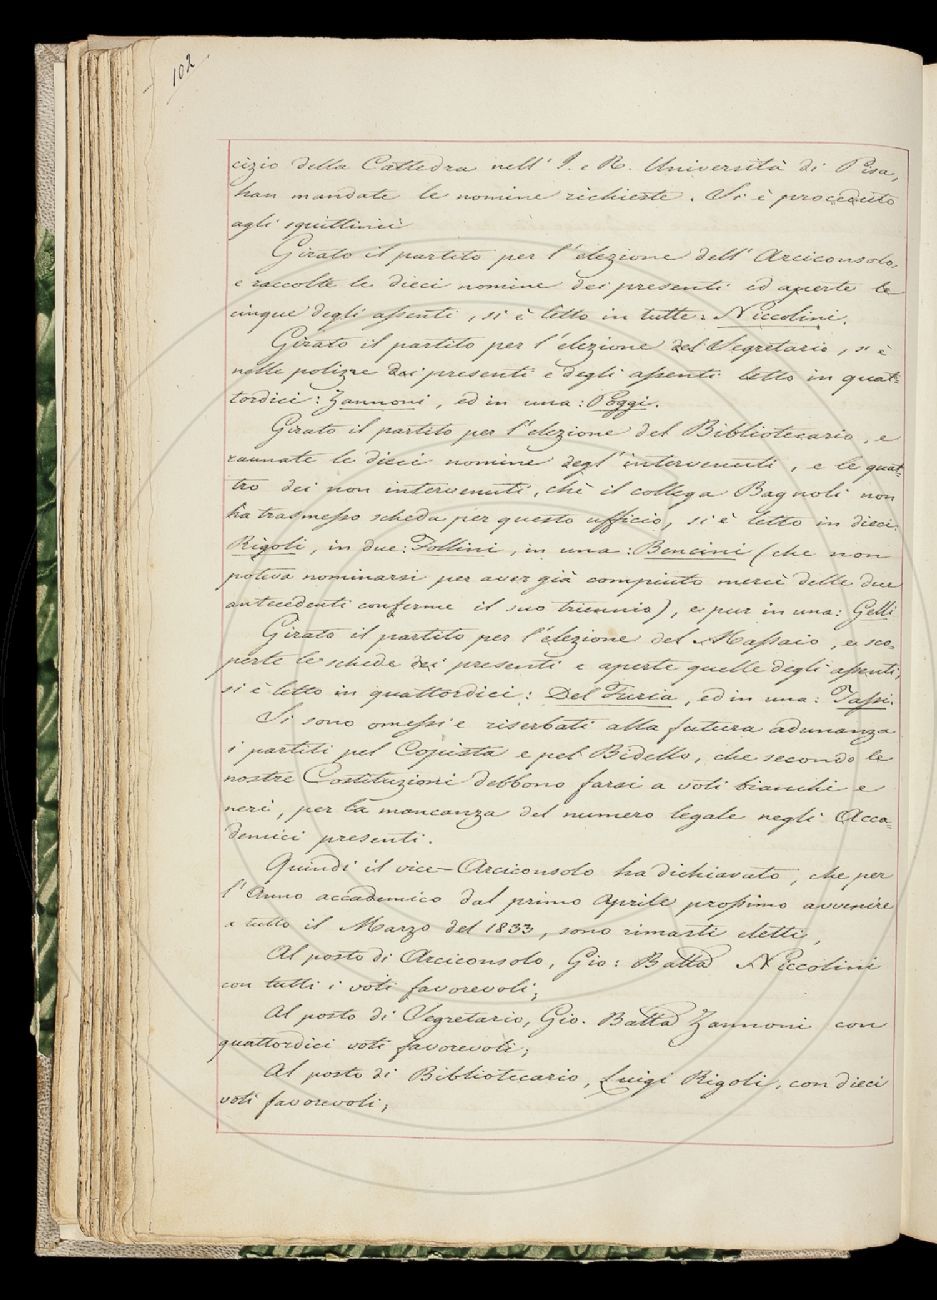 102
cizio della Cattedra nell' I. e R. Università di Pisa,
han mandate le nomine richieste. Si è proceduto
agli squittinii
Girato il partito per l'elezione dell'Arciconsolo,
e raccolte le dieci nomine dei presenti ed aperte le
cinque degli assenti, si è letto in tutte: Niccolini.
Girato il partito per l'elezione del Segretario, si è
nelle polizze dei presenti e degli assenti letto in quat-
tordici: Zannoni, ed in una: Poggi.
Girato il partito per l'elezione del Bibliotecario, e
raunate le dieci nomine degl'intervenuti, e le quat-
tro dei non intervenuti, chè il collega Bagnoli non
ha trasmesso scheda per questo uffìcio, si è letto in dieci
Rigoli, in due: Follini, in una: Bencini (che non
poteva nominarsi per aver già compiuto mercè delle due
antecedenti conferme il suo triennio), e pur in una: Gelli
Girato il partito per l'elezione del Massaio, e sco-
perte le schede dei presenti e aperte quelle degli assenti,
si è letto in quattordici: Del Furia, ed in una: Tassi.
Si sono omessi e riserbati alla futura adunanza
i partiti pel Copista e pel Bidello, che secondo le
nostre Costituzioni debbono farsi a voti bianchi e
neri, per la mancanza del numero legale negli Acca-
demici presenti.
Quindi il vice-Arciconsolo ha dichiarato, che per
l'Anno accademico dal primo Aprile prossimo avvenire
a tutto il Marzo del 1833, sono rimasti eletti,
Al posto di Arciconsolo, Gio: Batta Niccolini
con tutti i voti favorevoli;
Al posto di Segretario, Gio. Batta Zannoni con
quattordici voti favorevoli;
Al posto di Bibliotecario, Luigi Rigoli, con dieci
voti favorevoli;